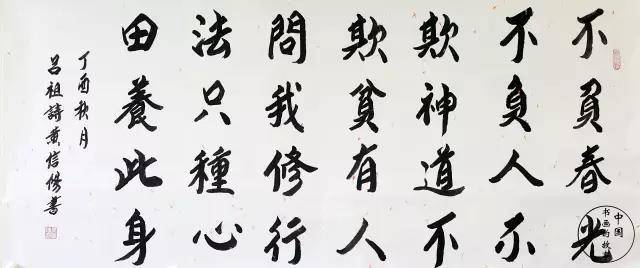 不負春光
不負人不
欺神道不
欺貧有人
問我修行
法只種心
田養此身
丁酉秋月
吕祖詩黄信書
中国
书画